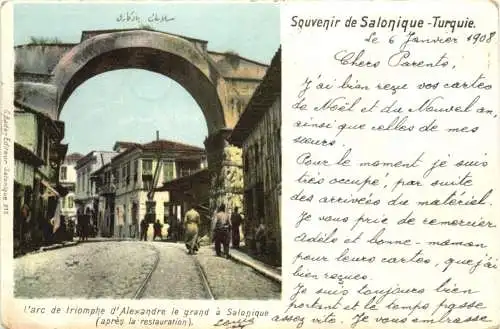 Souvenir de Salonique-Turquie.
Le 6 Janvier 1908
Chers Parents,
J'ai bien reçu vos cartes
de Noël et du Nouvel an,
ainsi que celles de mes
sœurs.
Pour le moment je suis
très occupé, par suite
des arrivages du matériel.
Je vous prie de remercier
Adèle et bonne-maman
pour leurs cartes, que j'ai
bien reçues.
Je suis toujours bien
portant et le temps passe
assez vite. Je vous embrasse
L'arc de triomphe d'Alexandre le grand à Salonique
(après la restauration).
Editeur-Salonique